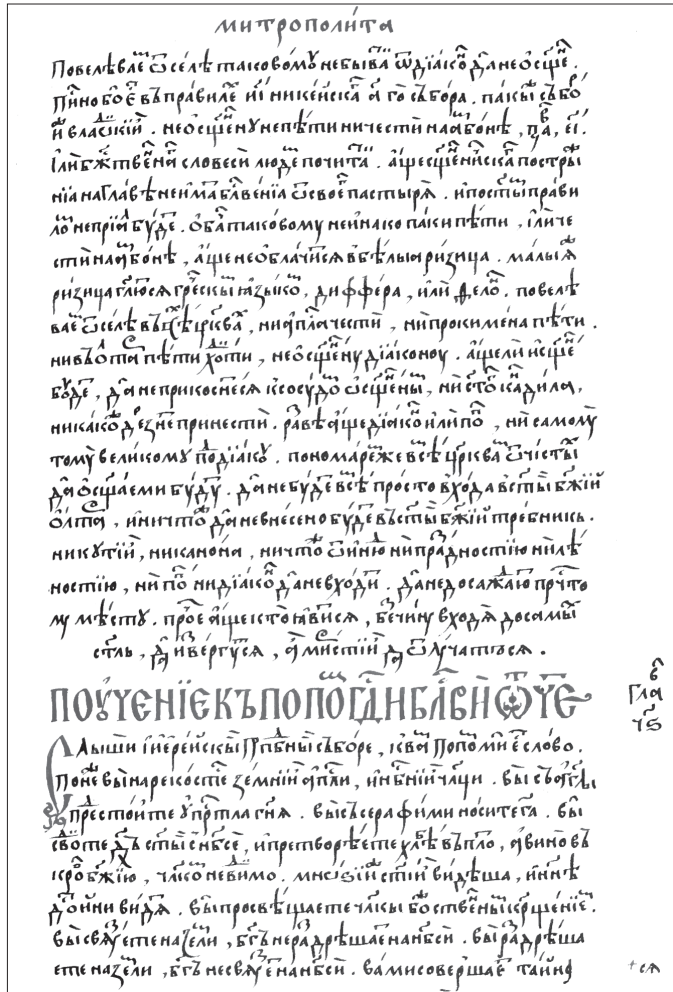 митрополи́та
Повелѣвае ѿселѣ таковомꙋ небыва ѿдіако дане ѡсще.
пино бо е въправиле иі никейска а го събора. пакы събо
и влаѡкіи. неѡсщенꙋ непѣти ничести наабонѣ, па, еі.
Ілибжтвена словеси люде почита. аще сщениска пострыⷤ
ніа наглавѣ неима блвеніа ѿсвое пастырѧ. ипосты прави
ло непріа бꙋде. оба таковомꙋ неинако паки пѣти, іличе
сти наабонѣ, аще необлачисѧ вбѣлыа ризица. малыѧ
ризица глюсѧ грески ꙗзыко, диффера, или фело. повелѣ
вае ѿселѣ въсѣ црква, ниапла чести, ни прокимена пѣти.
нивъолта пѣти хоти, неѡсщенꙋ діаконоу. ащели нсще
бꙋде, да неприкоснесѧ ксосꙋдо ѡсщены, ни сто кадила,
никако дрезне принести. разве аще діако или по, ни самомꙋ
томꙋ великомꙋ подіакꙋ. пономареже всѣ црква ѿчисты
да ѡсщаеми бꙋдꙋ. да небꙋде всѣ просто входа встыи бжіи
ѡлта, иничто да невнесено бꙋде въстыи бжіи требникъ.
никꙋтіи, никанона, ничто ѿиню ни праздностію ни лѣ
ностію, ни по нидіако да невходи. да недосажаю прчто
мꙋ мѣстꙋ. прое аще кто ꙗвисѧ, бечинꙋ входѧ досамы
стль, да извергꙋсѧ, а мистіи да ѿлꙋчатъсѧ.
ПОꙊЧЕНІЕ КЪ ПОПО ГДИ БЛВИ ѾЧЕ
в
гла
чѕ
Слыши іиерейскы прпбны съборе, ква попо ми е слово.
Поне вы нарекостесѧ земніи агли, и нбніи члци. вы съаглы
престоите ꙋпртла гнѧ. высъ серафими носите га. вы
сводите дхъ стыи снбсе, ипретворѣете хлѣ въпло, а вино въ
кро бжію, члко невимо. мноѕіи стіи видѣша, и ннѣ
до ѡни видѧ. вы просвѣщаете члкы боственыи крщеніе.
вы свѧꙋете на земли, бгъ нераздрѣшае нанбси. вы раздрѣша
ете на земли, бгъ несвѧꙋе нанбси. вами совершае тайно
+ сѧ